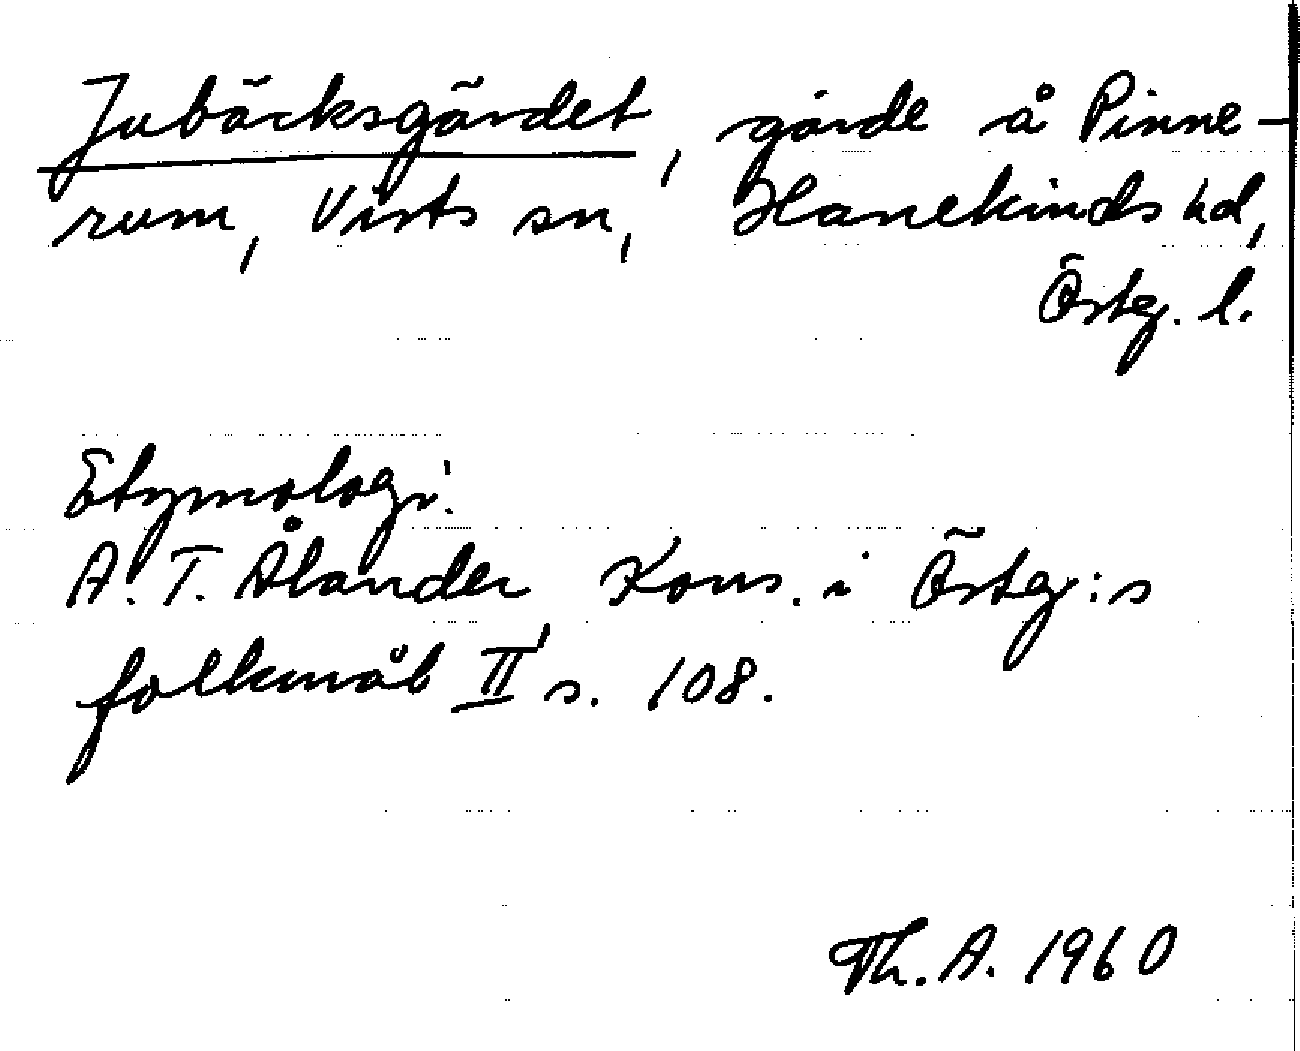 Jubäcksgärdet, gärde å Pinne-
rum, Vists sn, Hanekinds hd,
Östg. l.
Etymologi:
A. T. Ålander Kons. i Östg:s
folkmål II' s. 108.
Th. A. 1960